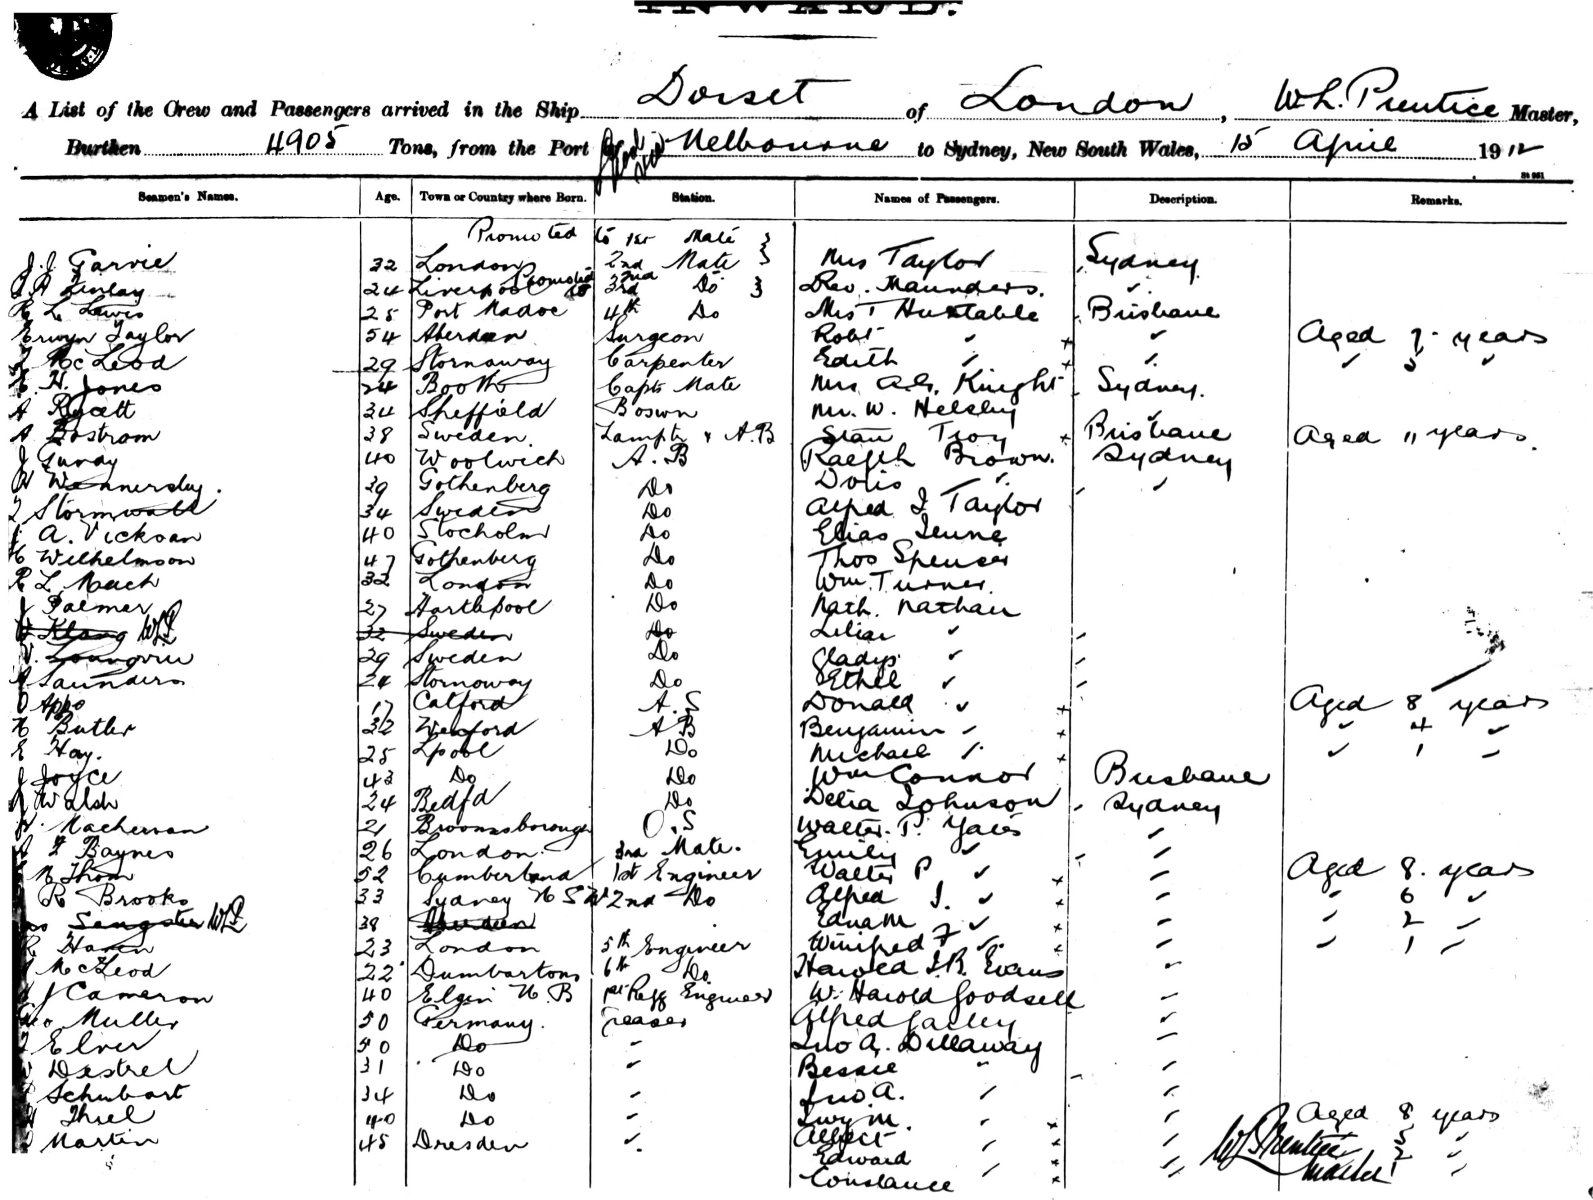 INWARD.
A List of the Crew and Passengers arrived in the Ship Dorset of London, W. L. Prentice Master,
Burthen 4905 Tons, from the Port Melbourne to Sydney, New South Wales, 15 April 1912
Seamen's Names. Age. Town or Country where Born. Station. Names of Passengers. Description. Remarks.
Promoted to 1st Mate }
J. J. Garvie 32 London 2nd Mate } Mrs Taylor Sydney
Finlay 24 Liverpool Promoted to 2nd 3rd Do } Rev. Maunders. "
R L Lewis 25 Port Madoc 4th Do Mrs Huxtable Brisbane
Erwyn Taylor 54 Aberdeen Surgeon Robt " x " Aged 7 years
McLeod 29 Stornaway Carpenter Edith " x " " 5 "
H. Jones 24 Bootle Capts Mate Mrs A. G. Knight Sydney.
A Ryatt 34 Sheffield Boswn Mr. W. Helsby
A Bostrom 38 Sweden. Lampt & A.B Stan Troy x Brisbane Aged 11 years.
J Gundy 40 Woolwich A.B Raefph Brown. Sydney
Wennersby. 39 Gothenberg Do Doris " "
Stormwall 34 Sweden Do Alfred J Taylor
A. Vickoan 40 Stocholm Do Elias Jeune
Wilhelmson 47 Gothenberg Do Thos Spencer
R L Mach 32 London Do Wm. Turner
J Palmer 27 Hartlepool Do Nath. Nathan
Klang WLP 32 Sweden Do Lilian " "
29 Sweden Do Gladys " "
Saunders 24 Stornoway Do Ethel " "
O Appo 17 Catford A.S Donald " x Aged 8 years
Butler 32 Wexford A B Benjamin " x " 4 "
E Hay. 25 Lpool Do Michael " x " 1 "
J Joyce 43 Do Do Wm Connor Brisbane
Walsh 24 Bedfd Do Delia Johnson Sydney
21 O.S Walter. P. Yates "
Baynes 26 London. 3rd Mate. Emily " "
N Thom 52 Cumberland 1st Engineer Walter P " x " Aged 8. years
R Brooks 33 Sydney N S W 2nd Do Alfred J. " x " " 6 "
Sangster WLP 38 Aberdeen Edna M " x " " 2 "
R Haren 23 London 5th Engineer Winifred F " x " " 1 "
McLeod 22 Dumbarton 6th Do Harold J. R. Evans "
J Cameron 40 Elgin N B 1st Refg Engineer W. Harold Goodsell "
Geo Muller 50 Germany. Greaser Alfred "
Elver 50 Do " Jno A. Dillaway "
Destrel 31 Do " Bessie " "
Schubart 34 Do " Jno A. " "
Thiel 40 Do " Lucy M. " x " Aged 8 years
Martin 45 Dresden " Albert " x " " 5 "
Edward " x " " 2 "
Constance " x " " 1 "
W L Prentice
Master